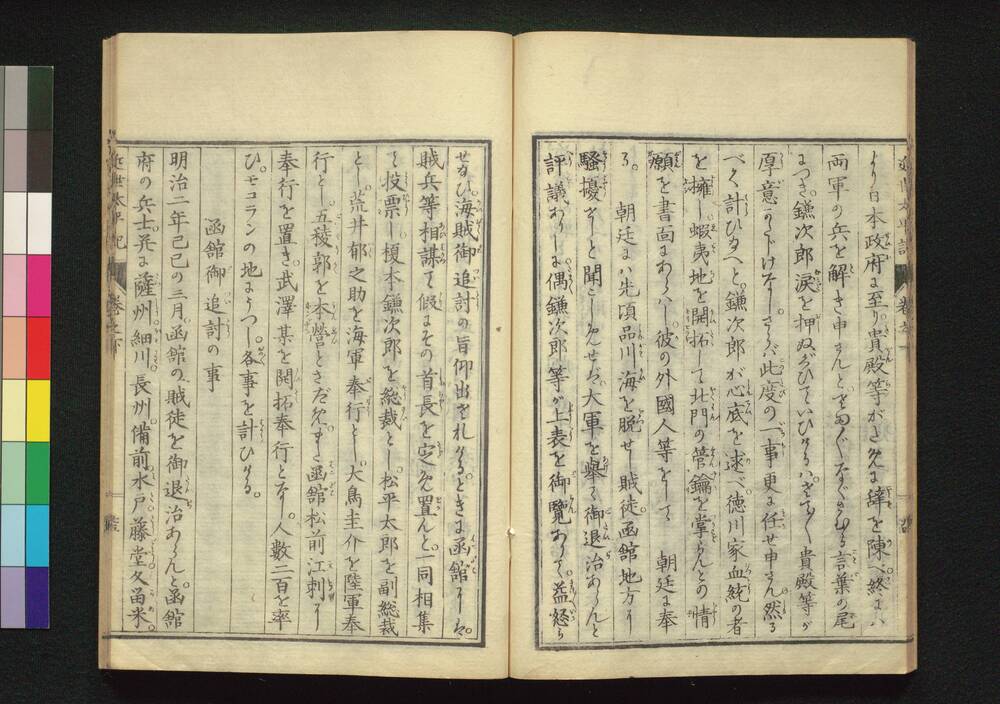 より日本政府に至り貴殿等がために辞を陳べ終には
両軍の兵を解き申さんとをのぶなぐさむる言葉の尾
につき鎌次郎涙を押ぬぐひていひけるはさても貴殿等が
厚意かたじけなしさらバ此度の一事更に任せ申さん然る
べく計ひ給へと鎌次郎が心底を述べ徳川家血統の者
を擁し蝦夷地を開拓して北門の管鑰を掌らんとの情
願を書面にあらハし彼の外國人等をして 朝廷に奉
る 朝廷にハ先頃品川海を脱せし賊徒函館地方に
騒擾すと聞こしめさせ大軍を挙て御退治あらんと
評議ありしに偶鎌次郎等が上表を御覧ありて益怒ら
せ給ひ海賊御追討の旨仰出されけるときに函館にハ
賊兵等相謀て假にその首長を定め置んと一同相集
て投票し榎本鎌次郎を総裁とし松平太郎を副総裁
とし荒井郁之助を海軍奉行とし大鳥圭介を陸軍奉
行とし五稜郭を本營とさだめまた函館松前江刺に
奉行を置き武澤某を開拓奉行となし人数二百を率
ひモコランの地にうつし各事を計ひける
函館御追討の事
明治二年己巳の三月函館の賊徒を御退治あらんと函館
府の兵士并に薩州細川長州備前水戸藤堂久留米
近世太平記
巻之下